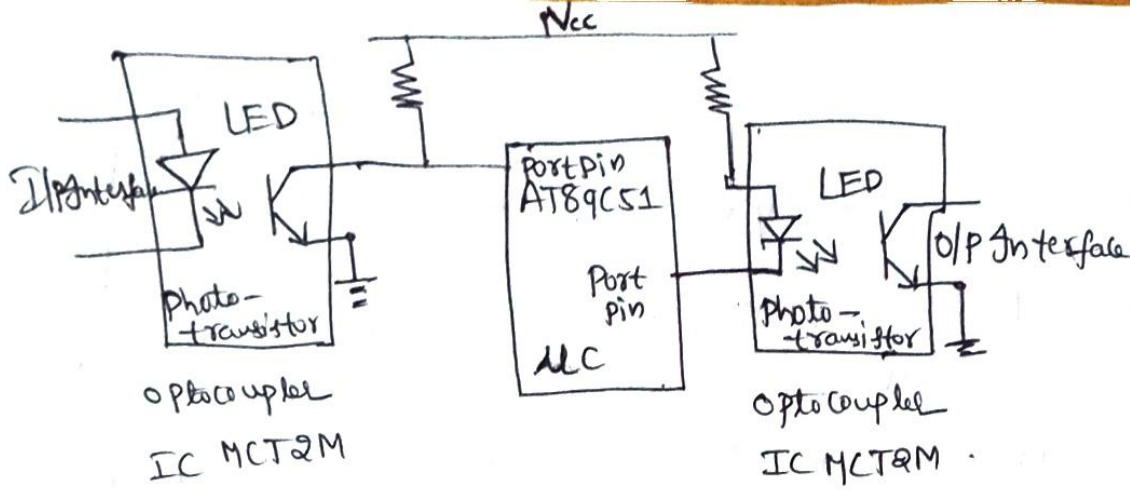 Vcc
LED
I/P Interface
Photo-
-transistor
optocoupler
IC MCT2M
Port pin
AT89C51
Port
pin
µC
LED
O/P Interface
Photo-
-transistor
optocoupler
IC MCT2M